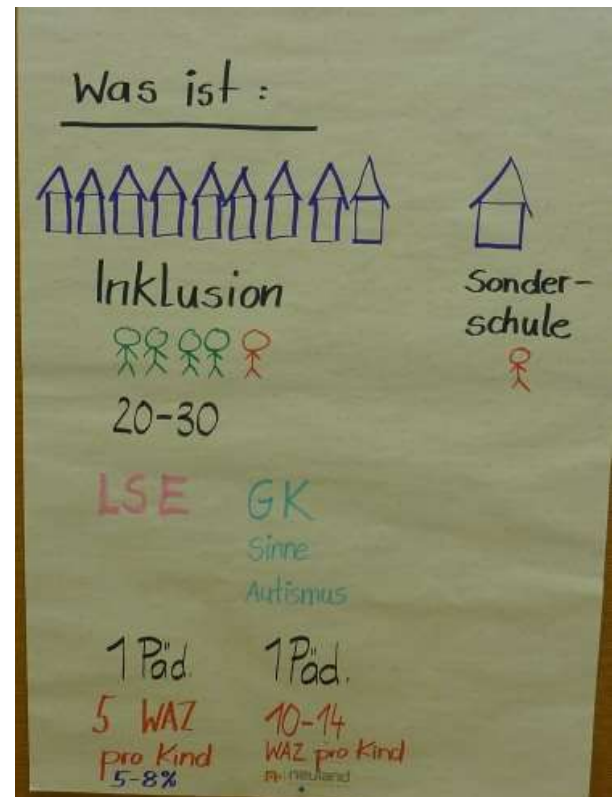 Was ist :
Inklusion
Sonder-
schule
20-30
LSE
GK
Sinne
Autismus
1 Päd.
5 WAZ
pro Kind
5-8%
1 Päd.
10-14
WAZ pro Kind
neuland